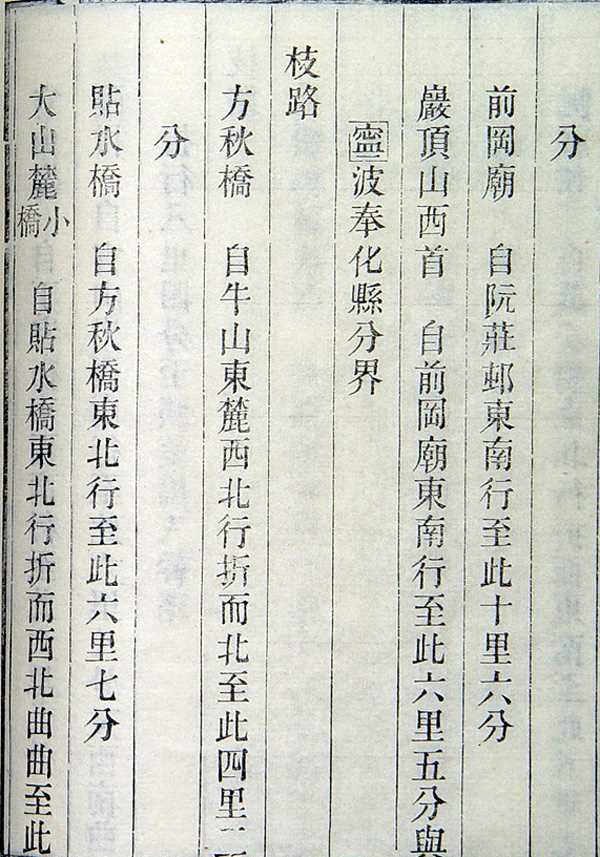 分
前岡廟 自阮莊邨東南行至此十里六分
巖頂山西首 自前岡廟東南行至此六里五分與
寍波奉化縣分界
枝路
方秋橋 自牛山東麓西北行折而北至此四里二
分
貼水橋 自方秋橋東北行至此六里七分
大山麓小橋 自貼水橋東北行折而西北曲曲至此